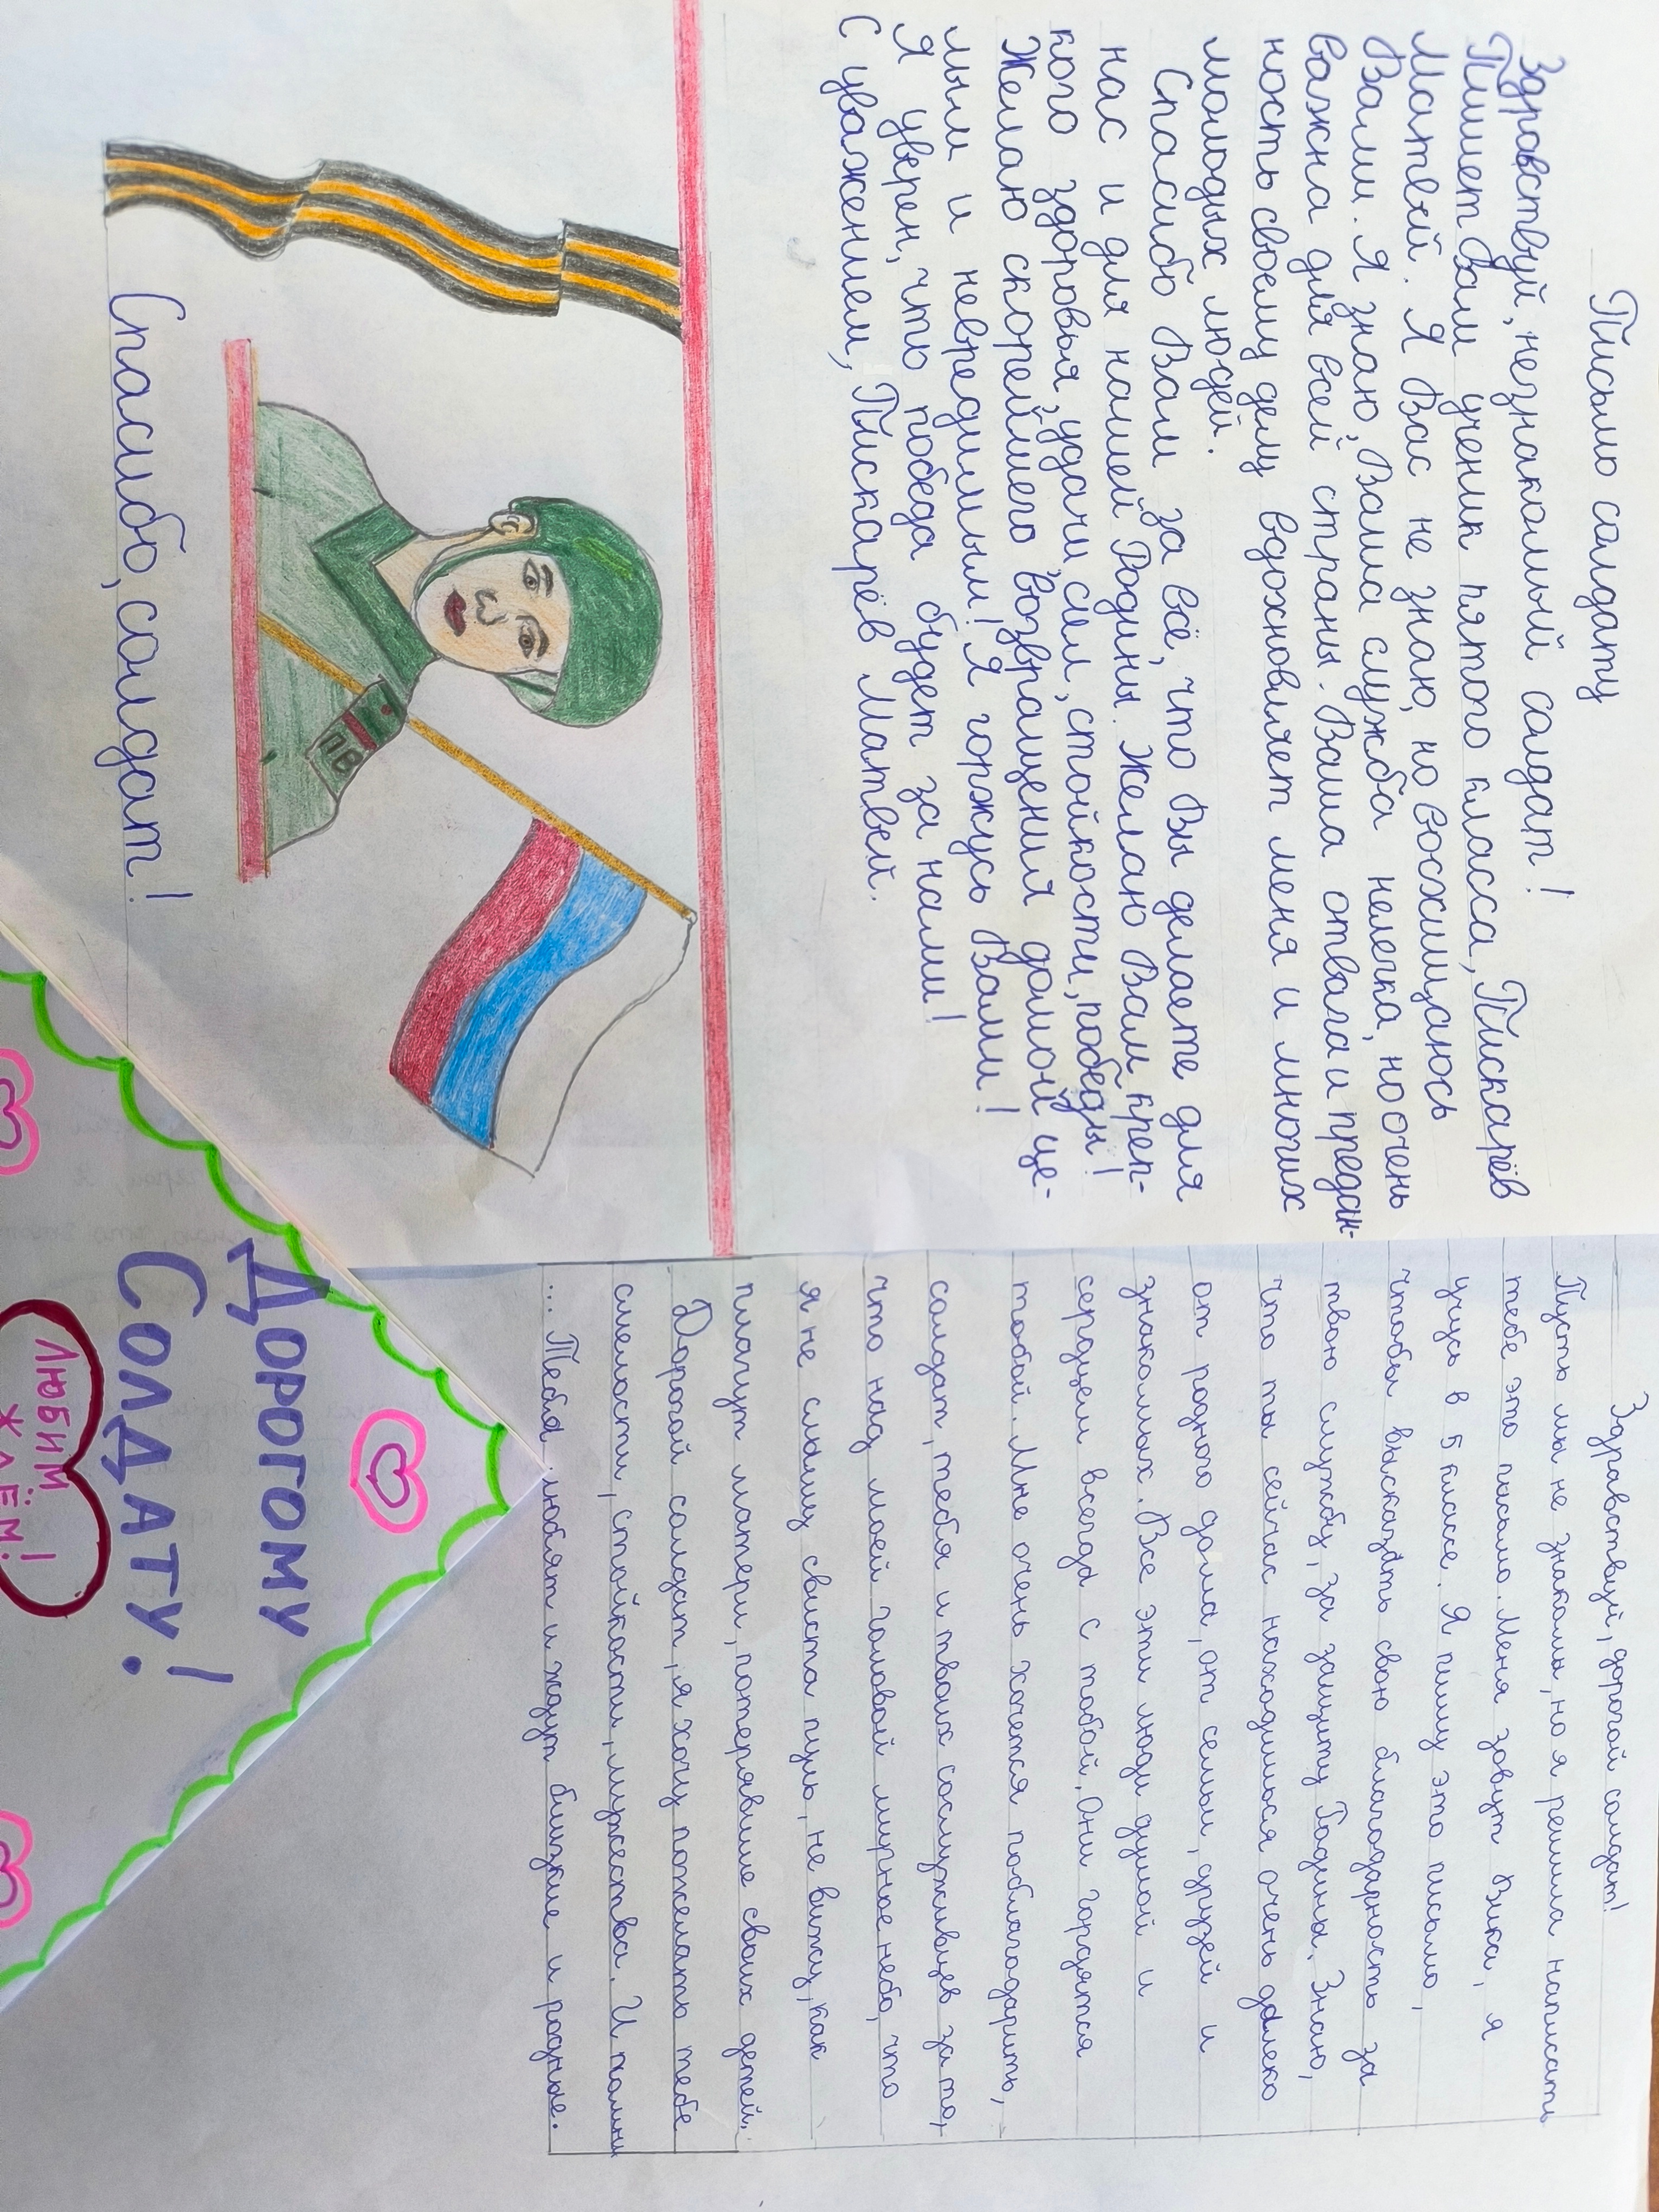 Письмо солдату
Здравствуй, незнакомый солдат!
Пишет Вам ученик пятого класса, Пискарёв
Матвей. Я Вас не знаю, но восхищаюсь
Вами. Я знаю, Ваша служба нелегка, но очень
важна для всей страны. Ваша отвага и предан-
ность своему делу вдохновляет меня и многих
молодых людей.
Спасибо Вам за всё, что Вы делаете для
нас и для нашей Родины. Желаю Вам креп-
кого здоровья, удачи, сил, стойкости, победы!
Желаю скорейшего возвращения домой це-
лым и невредимым! Я горжусь Вами!
Я уверен, что победа будет за нами!
С уважением, Пискарёв Матвей.
ПВ
Спасибо, солдат!
Здравствуй, дорогой солдат!
Пусть мы не знакомы, но я решила написать
тебе это письмо. Меня зовут Вика, я
учусь в 5 классе. Я пишу это письмо,
чтобы высказать свою благодарность за
твою службу, за защиту Родины. Знаю,
что ты сейчас находишься очень далеко
от родного дома, от семьи, друзей и
знакомых. Все эти люди душой и
сердцем всегда с тобой. Они гордятся
тобой. Мне очень хочется поблагодарить,
солдат, тебя и твоих сослуживцев за то,
что над моей головой мирное небо, что
я не слышу свиста пуль, не вижу, как
плачут матери, потерявшие своих детей.
Дорогой солдат, я хочу пожелать тебе
смелости, стойкости, мужества. И помни
... Тебя любят и ждут близкие и родные.
Дорогому
Солдату!
Любим
Ждём!